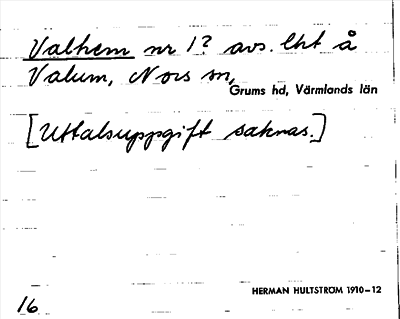 Valhem nr 1? avs. lht å
Valum, Nors sn,
Grums hd, Värmlands län
[Uttalsuppgift saknas.]
HERMAN HULTSTRÖM 1910-12
16